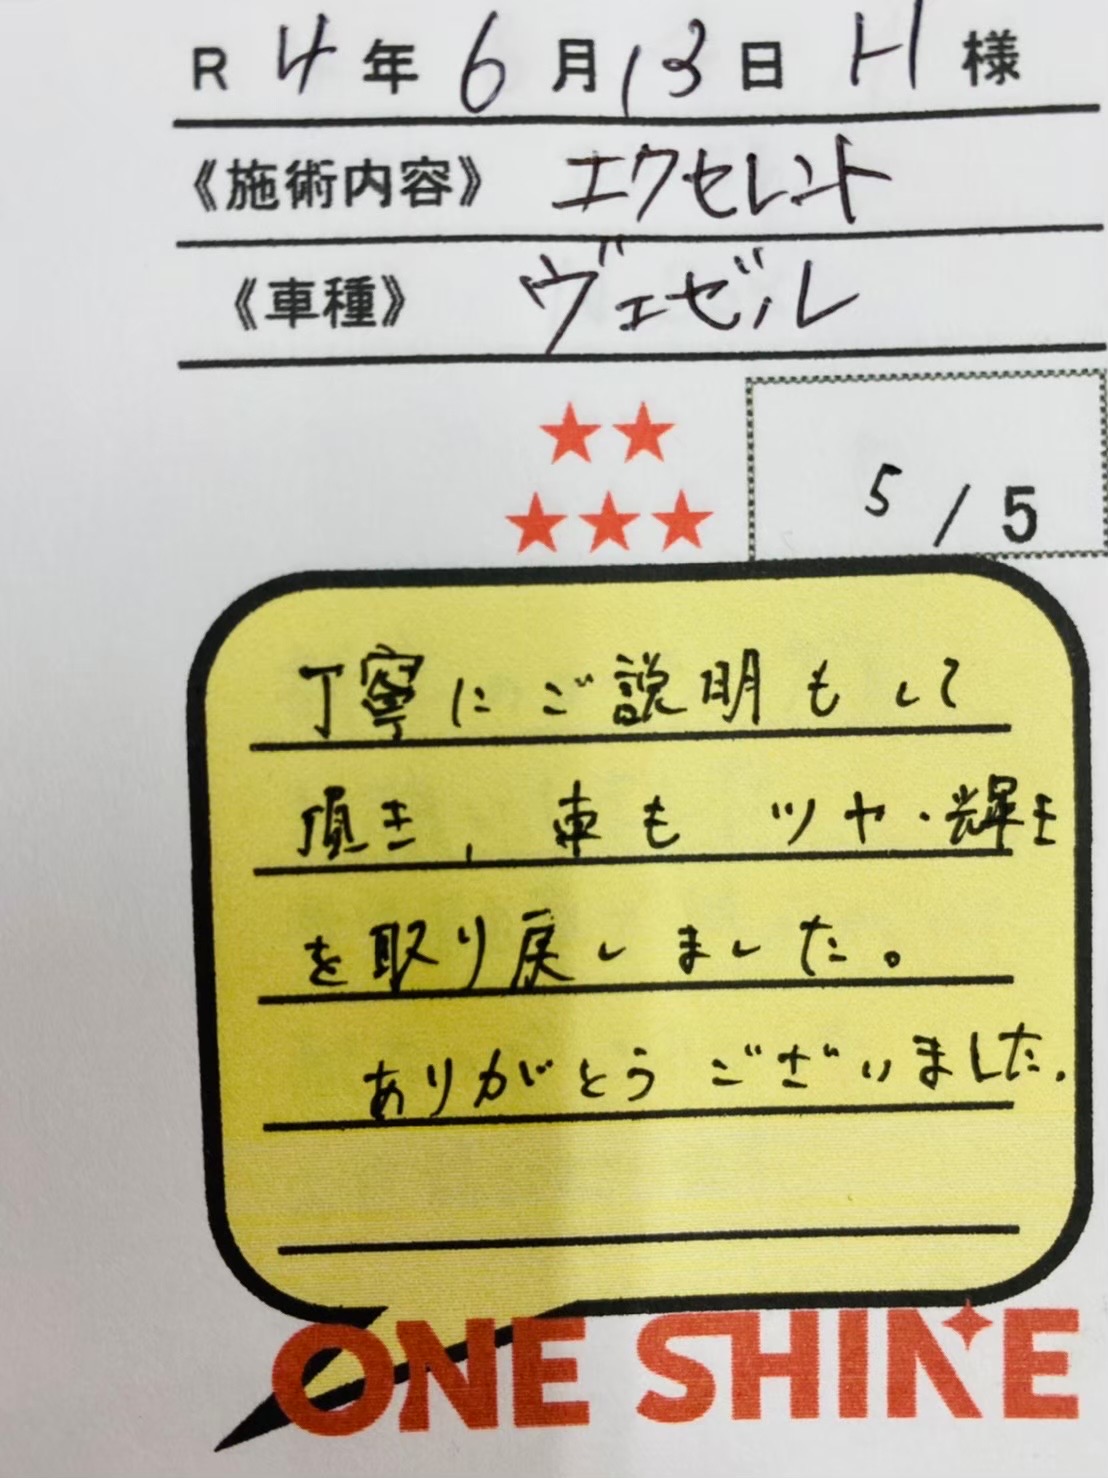 R 4年 6月13日 H 様
《施術内容》 エクセレント
《車種》 ヴェゼル
★★
★★★
5/5
丁寧にご説明もして
頂き、車もツヤ・輝き
を取り戻しました。
ありがとうございました.
ONE SHINE